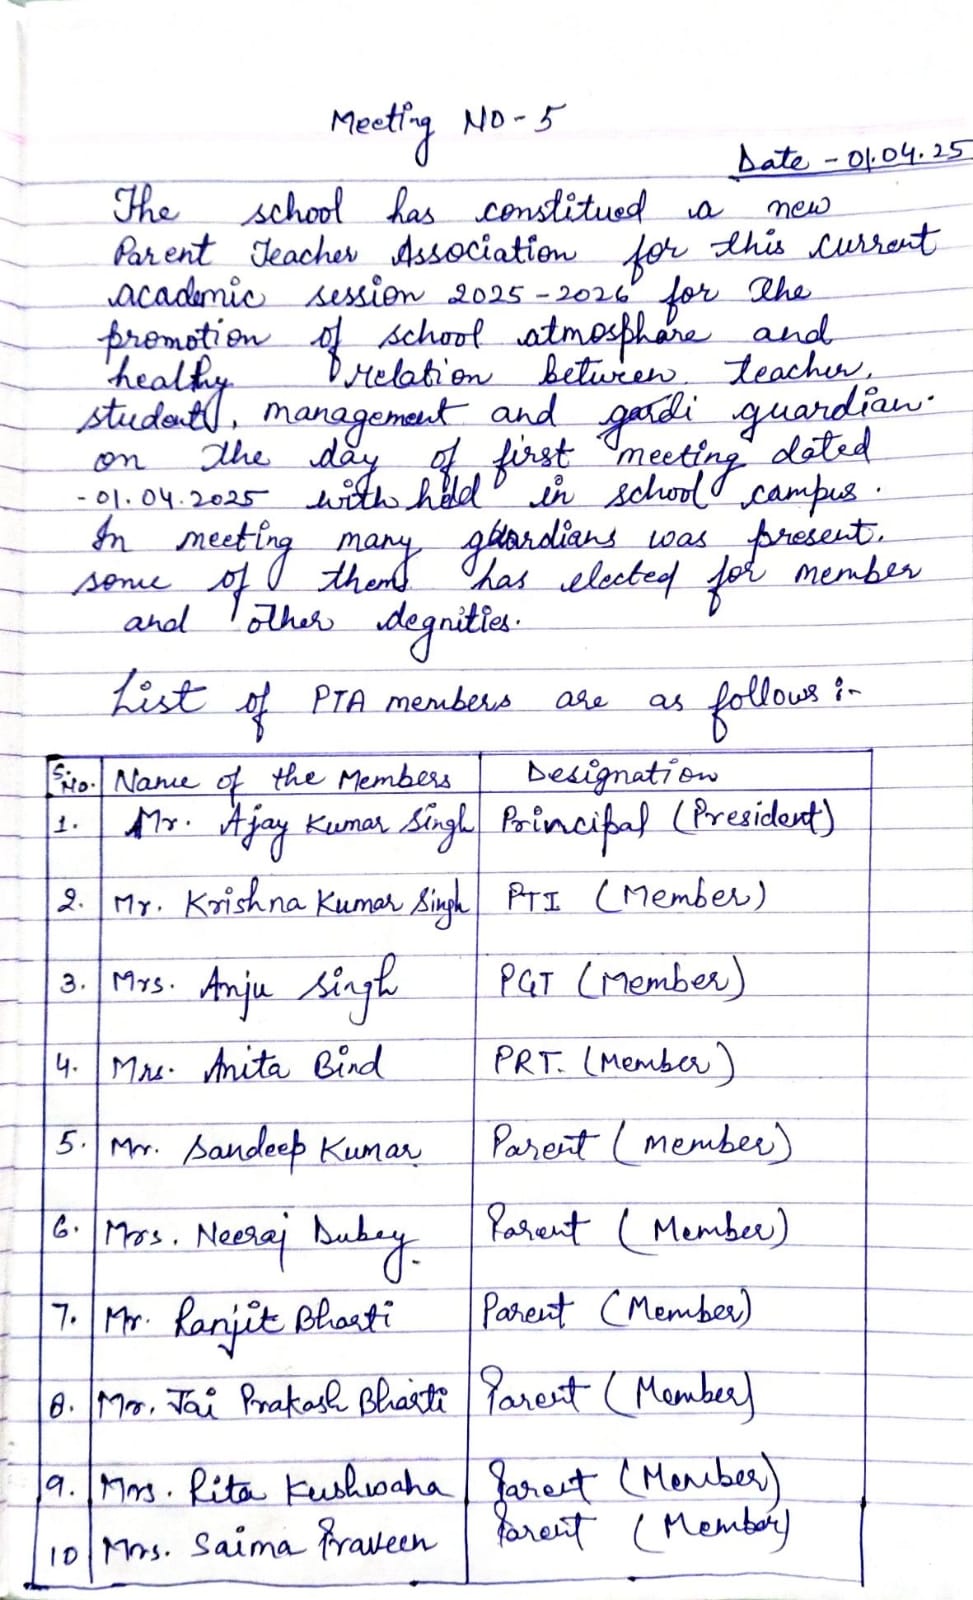 Meeting NO-5
Date - 01.04.25
The school has constitued a new
Parent Teacher Association for this current
academic session 2025-2026 for the
promotion of school atmosphare and
healthy relation between teacher,
students, management and guardian.
on the day of first meeting dated
-01.04.2025 with held in school campus.
In meeting many guardians was present.
some of them has elected for member
and other degnities.
List of PTA members are as follows :-
S.No. Name of the Members Designation
1. Mr. Ajay Kumar Singh Principal (President)
2. Mr. Krishna Kumar Singh PTI (Member)
3. Mrs. Anju Singh PGT (Member)
4. Mrs. Anita Bind PRT. (Member)
5. Mr. Sandeep Kumar Parent (member)
6. Mrs. Neeraj Dubey. Parent (Member)
7. Mr. Ranjit Bharti Parent (Member)
8. Mr. Jai Prakash Bharti Parent (Member)
9. Mrs. Rita Kushwaha Parent (Member)
10 Mrs. Saima Praveen Parent (Member)